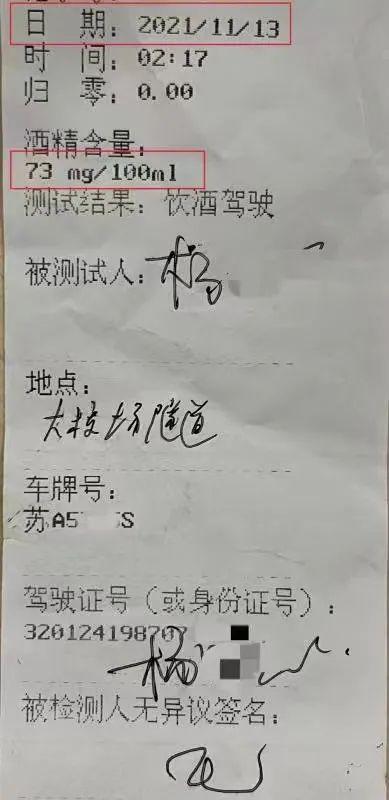 日 期：2021/11/13
时 间：02:17
归 零：0.00
酒精含量：
73 mg/100ml
测试结果：饮酒驾驶
被测试人：杨
地点：
大校场隧道
车牌号：
苏A5 S
驾驶证号（或身份证号）：
320124198707
杨
被检测人无异议签名：